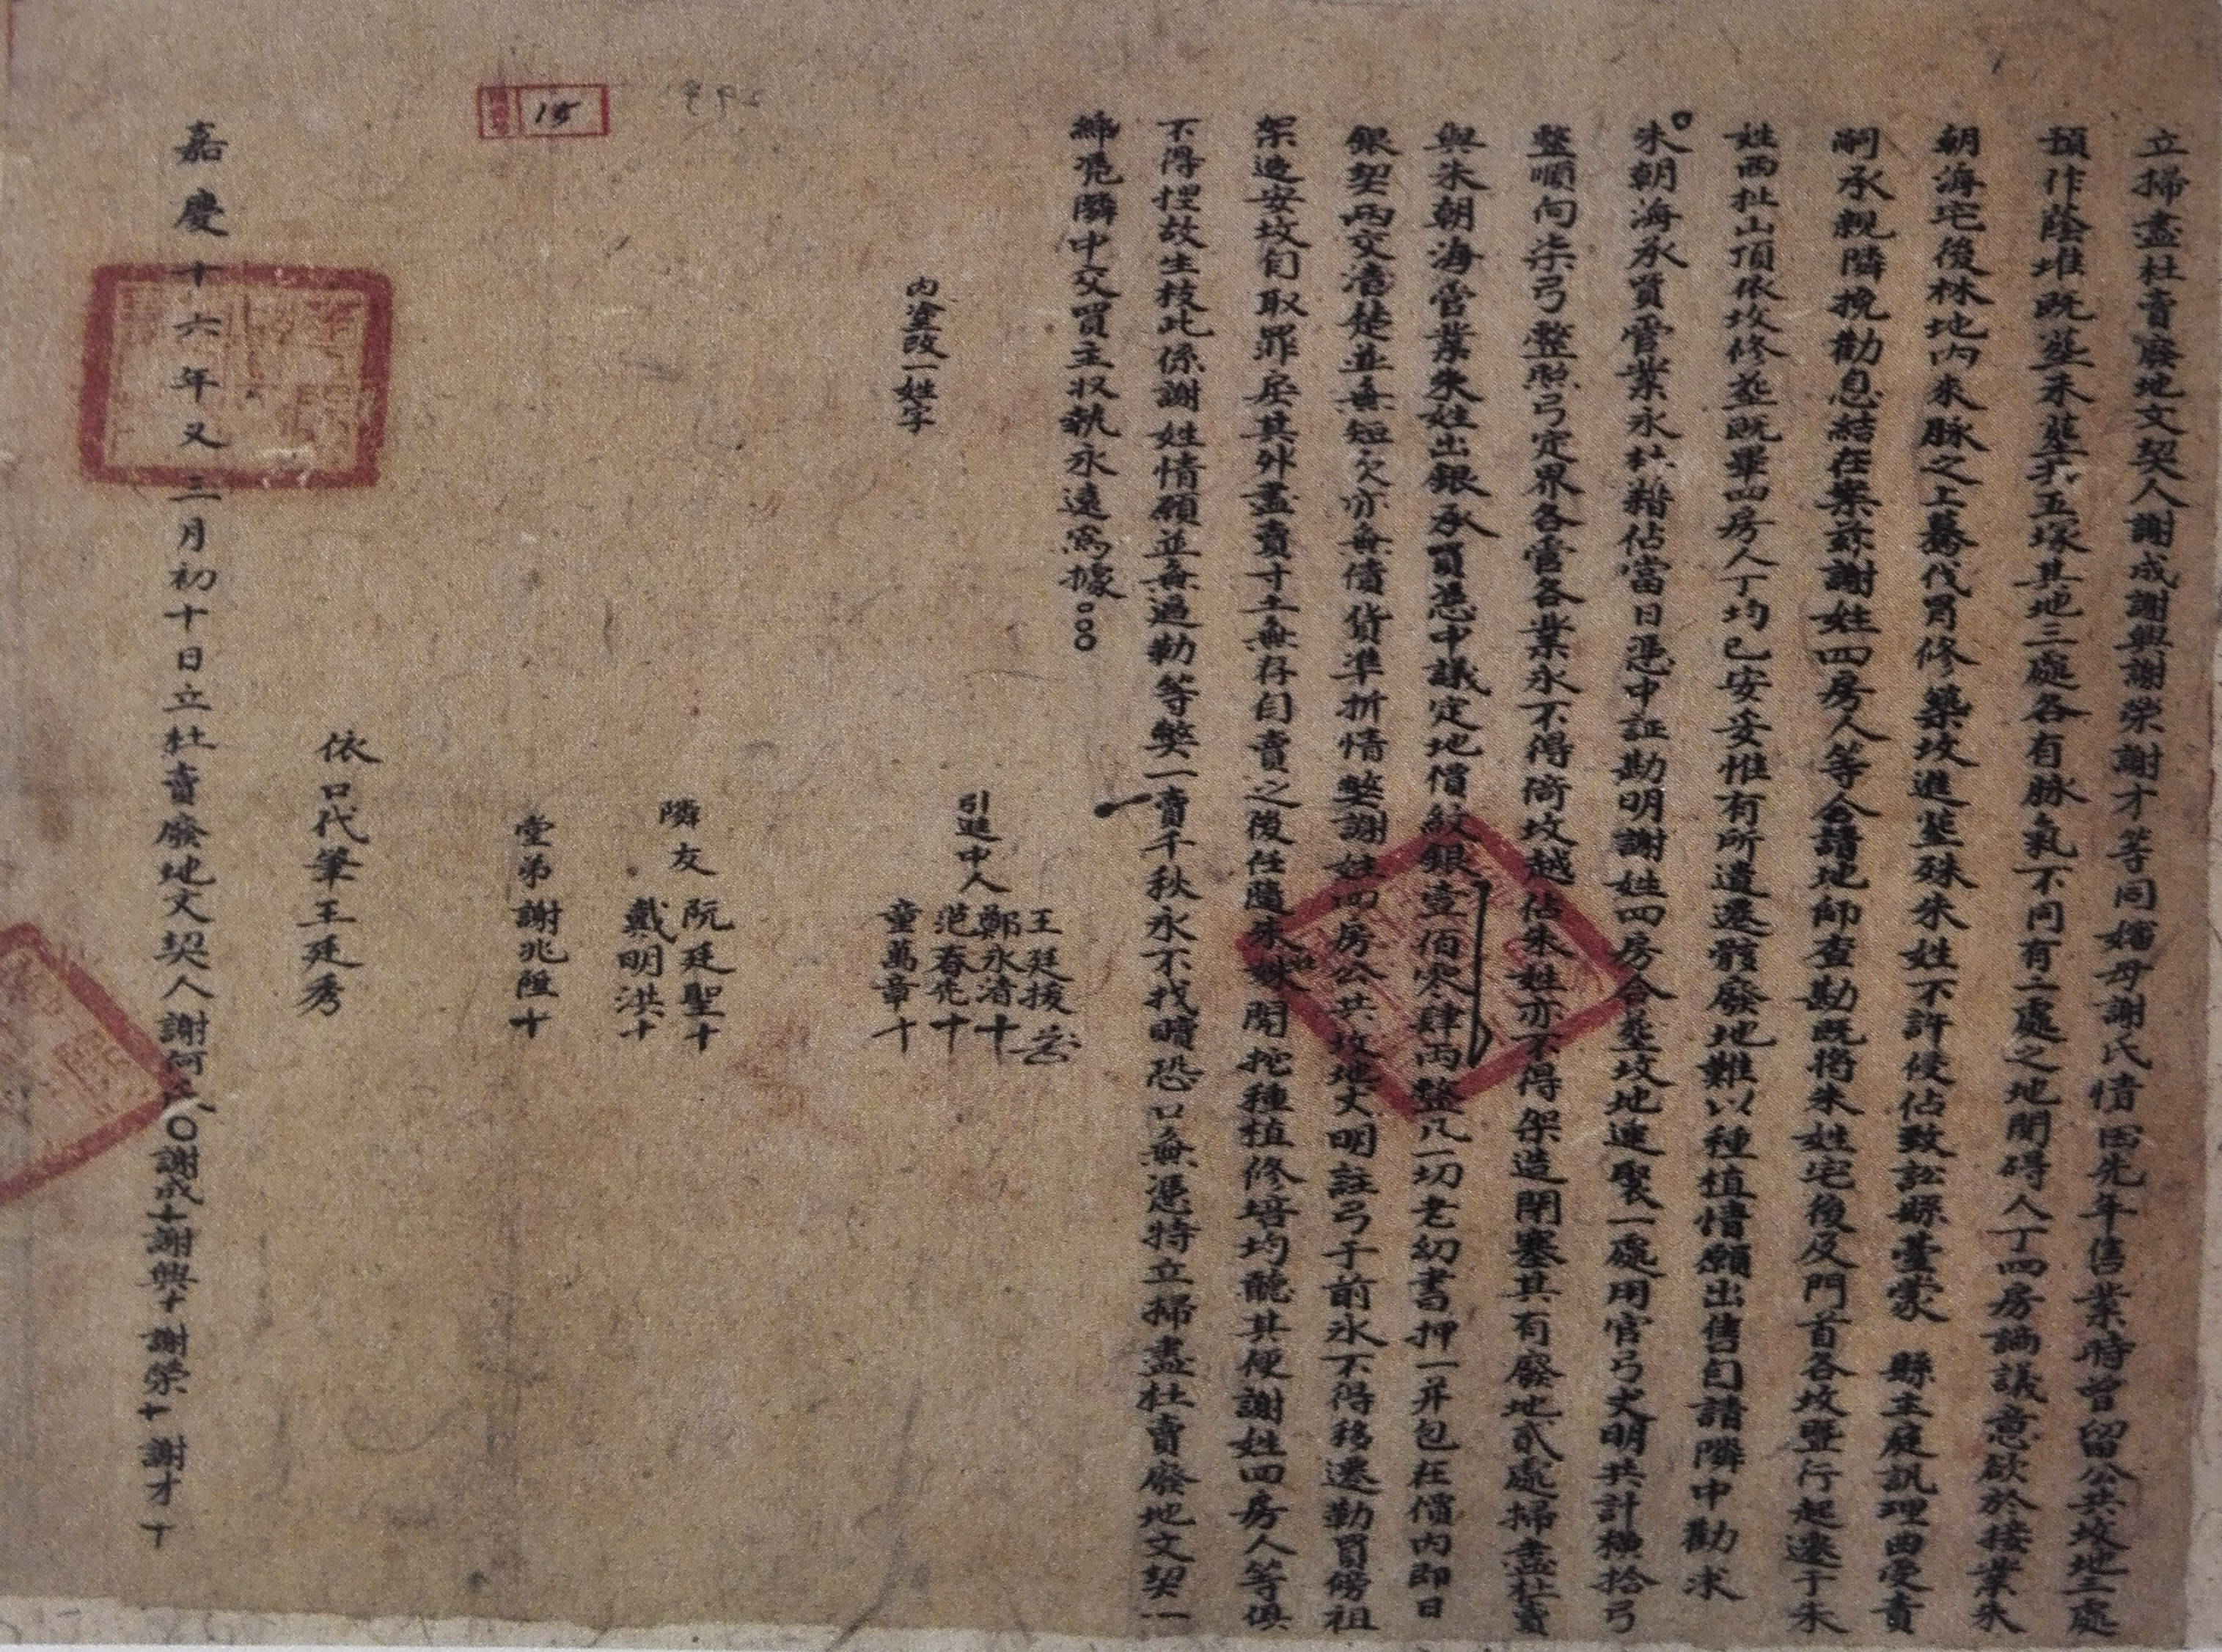 立掃盡杜賣廢地文契人謝成謝興謝榮謝才等同嬸母謝氏情因先年售業時曾留公共坟地三處
預作蔭堆既塟未塟共五塚其地三處各有脉氣不同有二處之地閉碍人丁四房謫議意欲於接業朱
朝海宅後林地內來脉之上蓦伐胃修築坟進塟殊朱姓不許侵佔致訟縣臺蒙 縣主庭訊理曲受責
嗣承親隣挽勸息結在案茲謝姓四房人等仝請地師查勘既將朱姓宅後及門首各坟盡行起遷于朱
姓西扯山頂依坎修塟既畢四房人丁均已安妥惟有所遺遷骸廢地難以種植情願出售自請隣中勸求
朱朝海承買管業永杜藉佔當日憑中証勘明謝姓四房合塟坟地連聚一處用官弓丈明共計橫拾弓
整順向柒弓整照弓定界各管各業永不得倚坟越佔朱姓亦不得架造閉塞其有廢地貳處掃盡杜賣
與朱朝海管業朱姓出銀承買憑中議定地價紋銀壹佰零肆兩整凡一切老幼書押一并包在價內即日
銀契兩交清楚並無短欠亦無債貨準折情弊謝姓四房公共坟地丈明註弓于前永不得移遷勒買傍祖
架造安坟自取罪戾其外盡賣寸土無存自賣之後任隨朱姓開挖種植修培均聽其便謝姓四房人等俱
不得捏故生枝此係謝姓情願並無逼勒等弊一賣千秋永不找贖恐口無憑特立掃盡杜賣廢地文契一
紙凭隣中交買主收執永遠爲據
內塗改一姓字
引進中人
王廷援
鄭永清十
范春凭十
童萬章十
隣友
阮廷聖十
戴明洪十
堂弟謝兆陞十
依口代筆王廷秀
嘉慶十六年又三月初十日立杜賣廢地文契人謝何氏〇謝成十謝興十謝榮十謝才十
15